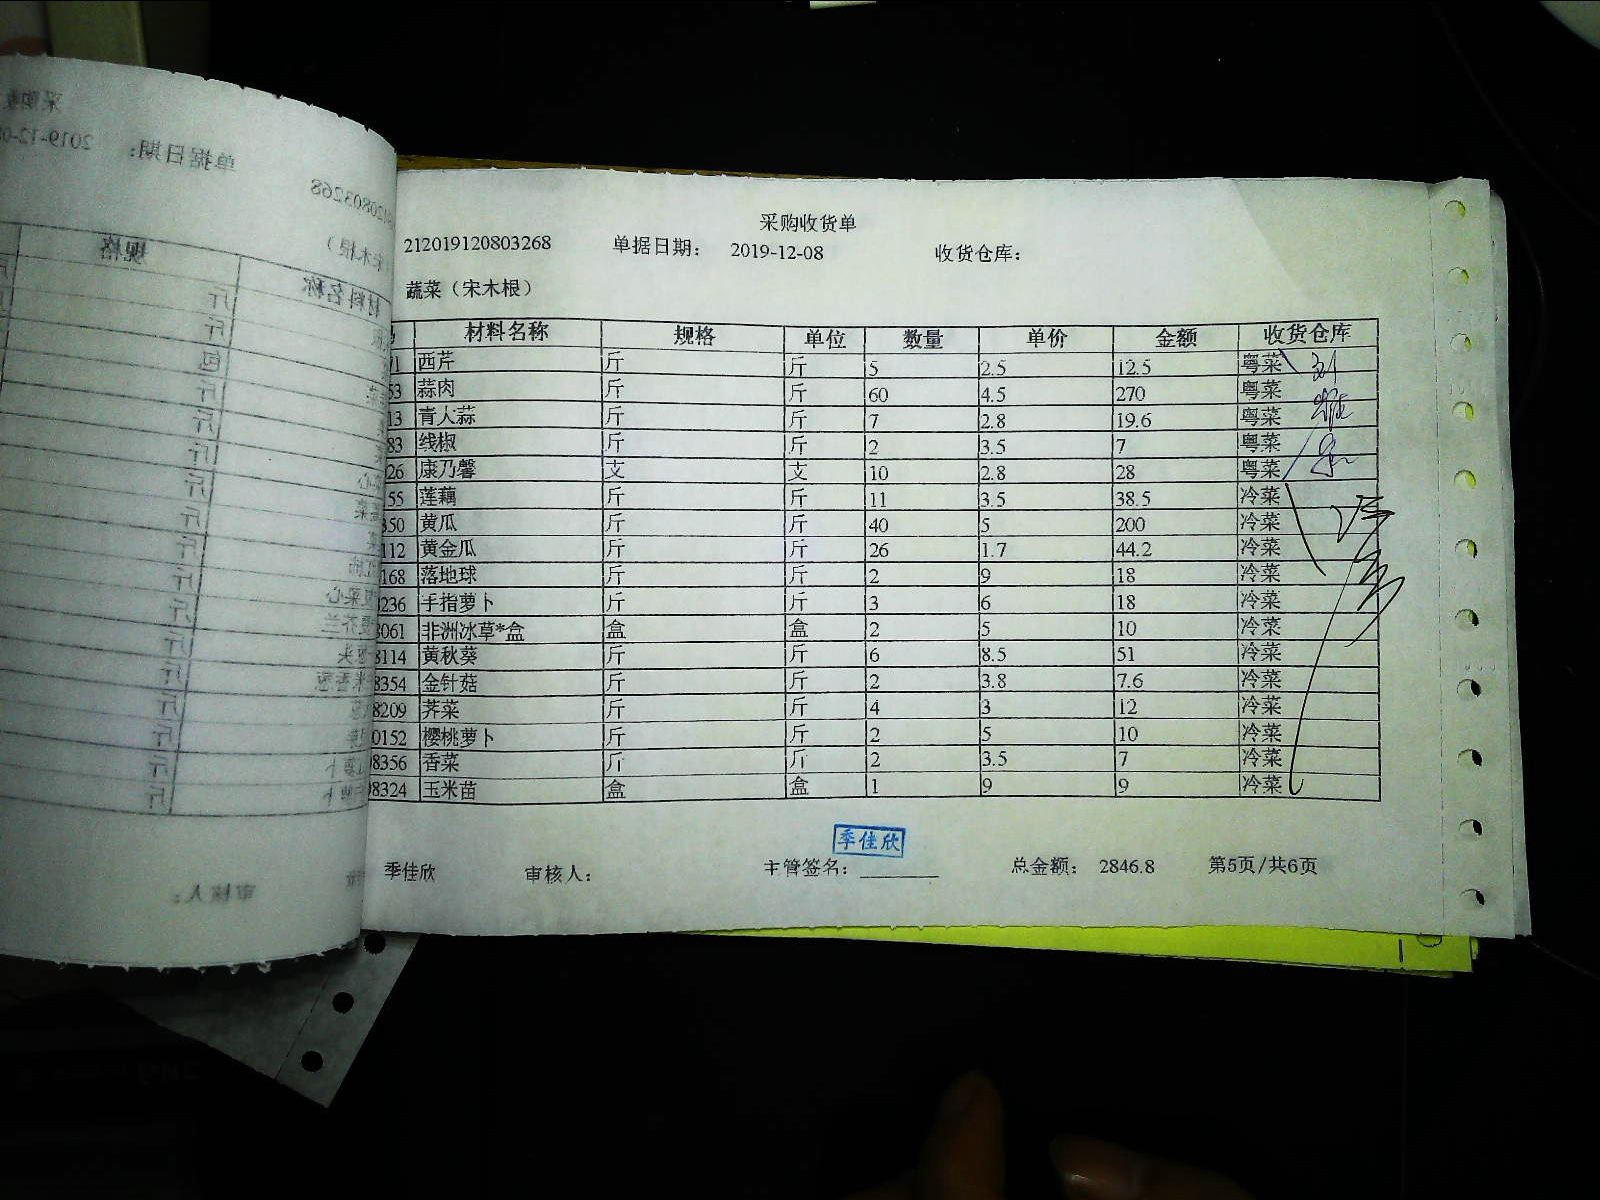 采购收货单
212019120803268 单据日期： 2019-12-08 收货仓库：
蔬菜（宋木根）
材料名称 规格 单位 数量 单价 金额 收货仓库
71 西芹 斤 斤 5 2.5 12.5 粤菜
53 蒜肉 斤 斤 60 4.5 270 粤菜
13 青大蒜 斤 斤 7 2.8 19.6 粤菜
83 线椒 斤 斤 2 3.5 7 粤菜
26 康乃馨 支 支 10 2.8 28 粤菜
55 莲藕 斤 斤 11 3.5 38.5 冷菜
350 黄瓜 斤 斤 40 5 200 冷菜
112 黄金瓜 斤 斤 26 1.7 44.2 冷菜
168 落地球 斤 斤 2 9 18 冷菜
236 手指萝卜 斤 斤 3 6 18 冷菜
3061 非洲冰草*盒 盒 盒 2 5 10 冷菜
8114 黄秋葵 斤 斤 6 8.5 51 冷菜
8354 金针菇 斤 斤 2 3.8 7.6 冷菜
8209 荠菜 斤 斤 4 3 12 冷菜
0152 樱桃萝卜 斤 斤 2 5 10 冷菜
08356 香菜 斤 斤 2 3.5 7 冷菜
08324 玉米苗 盒 盒 1 9 9 冷菜
季佳欣
季佳欣 审核人： 主管签名： 总金额： 2846.8 第5页/共6页